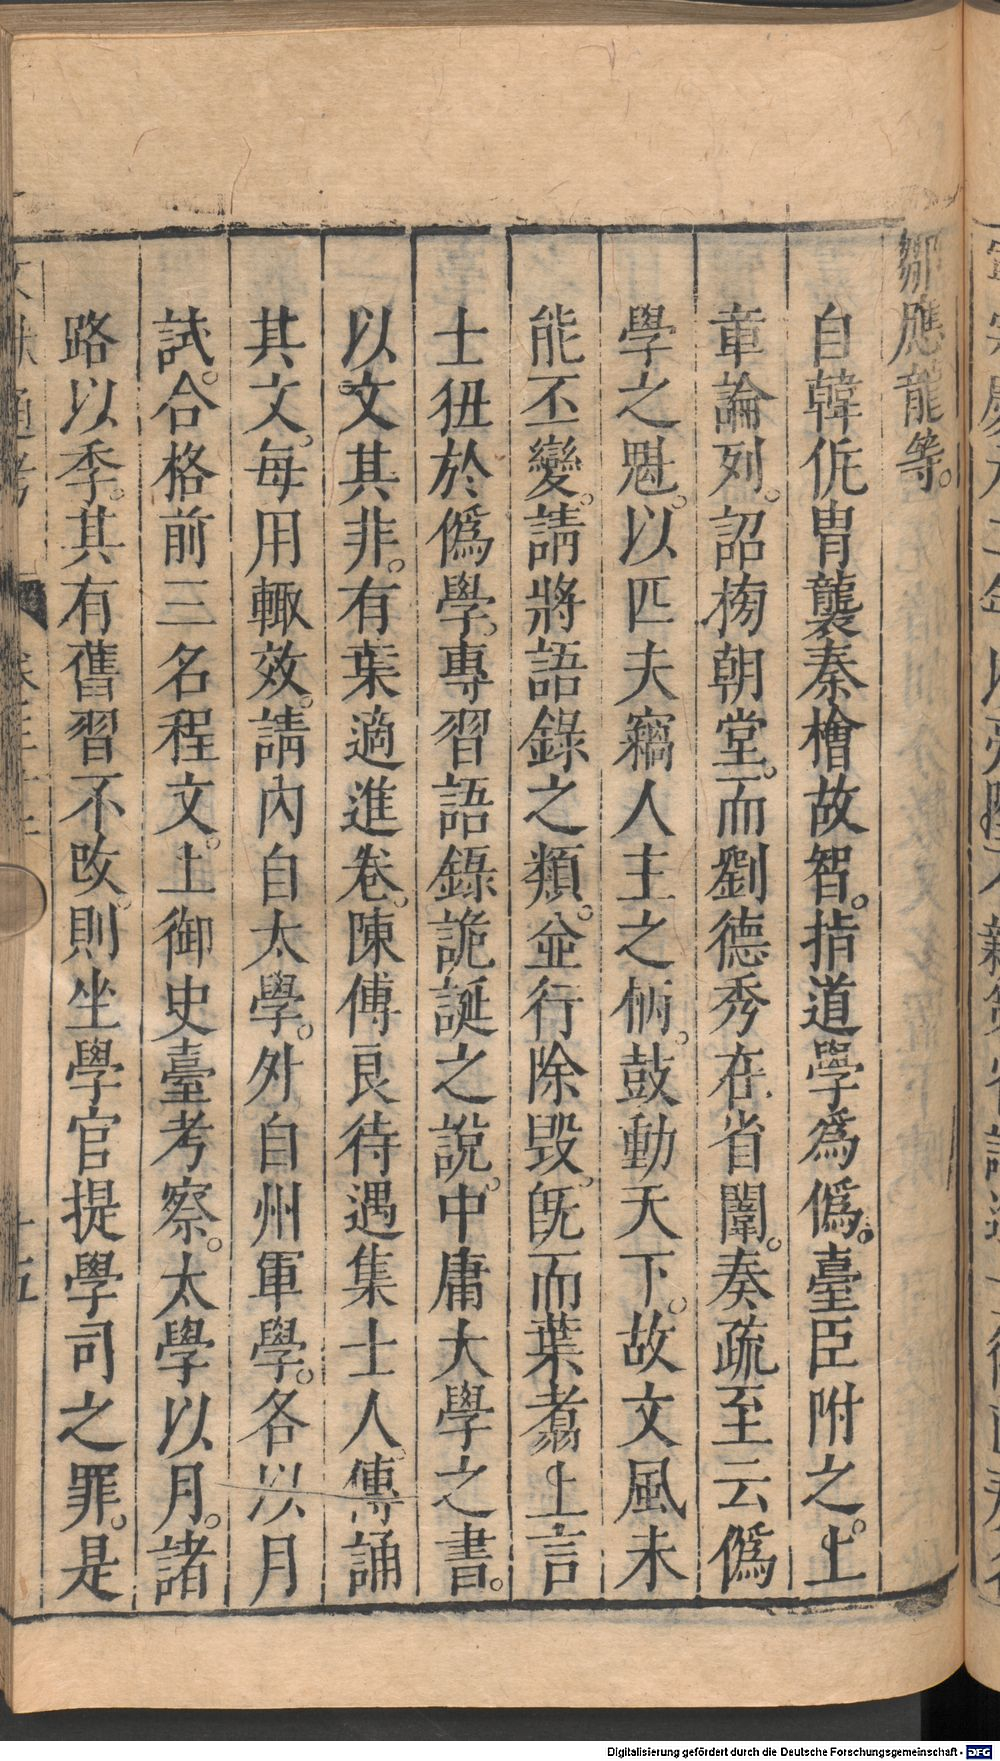 鄒應龍等。
自韓侂冑襲秦檜故智。指道學爲僞。臺臣附之。上
章論列。詔榜朝堂。而劉德秀在省闈。奏疏至云僞
學之魁。以匹夫竊人主之柄。鼓動天下。故文風未
能丕變。請將語錄之類。並行除毀。旣而葉翥上言
士狃於僞學。專習語錄詭誕之說。中庸大學之書。
以文其非。有葉適進卷。陳傅良待遇集士人傳誦
其文。每用輒效。請內自太學。外自州軍學。各以月
試。合格前三名程文。上御史臺考察。太學以月。諸
路以季。其有舊習不改。則坐學官提學司之罪。是
文獻通考
十五
Digitalisierung gefördert durch die Deutsche Forschungsgemeinschaft - DFG